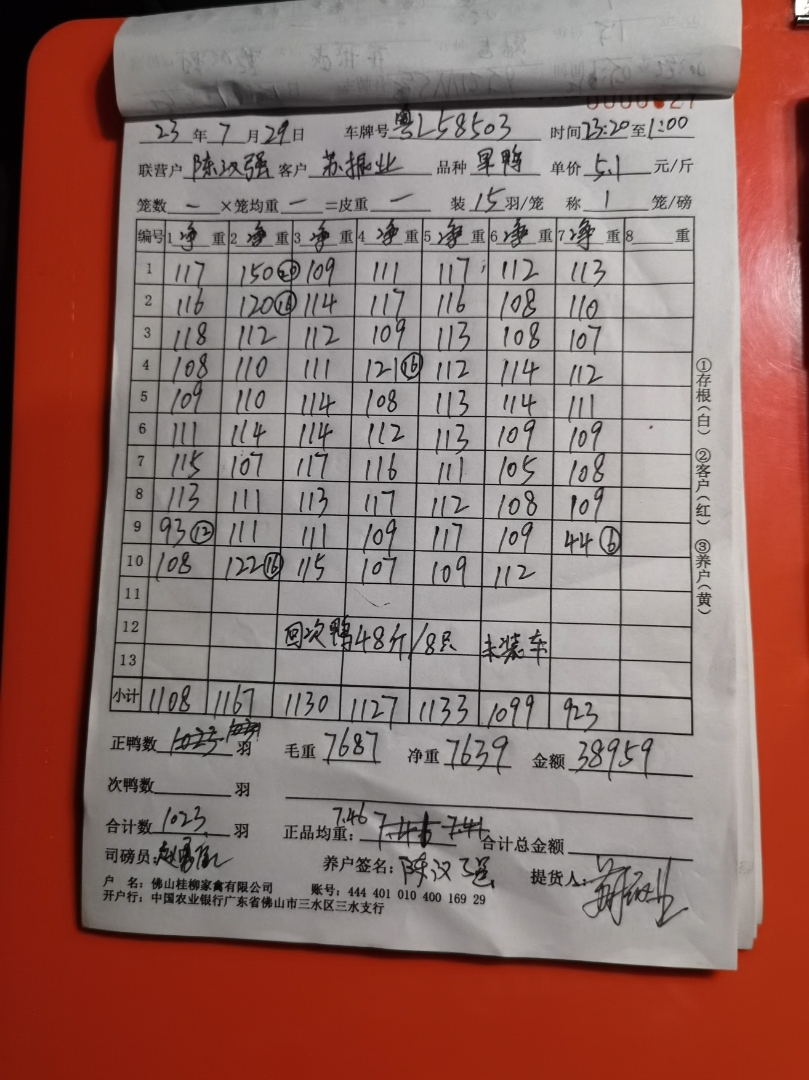 0000027
23 年 7 月 29 日 车牌号 粤L58503 时间 23:20 至 1:00
联营户 陈汉强 客户 苏振业 品种 单鸭 单价 5.1 元/斤
笼数 — ×笼均重 — =皮重 — 装 15 羽/笼 称 1 笼/磅
编号 1 净 重 2 净 重 3 净 重 4 净 重 5 净 重 6 净 重 7 净 重 8 重
1 117 150 109 111 117 112 113
2 116 120 114 117 116 108 110
3 118 112 112 109 113 108 107
4 108 110 111 121⑯ 112 114 112
5 109 110 114 108 113 114 111
6 111 114 114 112 113 109 109
7 115 107 117 116 111 105 108
8 113 111 113 117 112 108 109
9 93⑫ 111 111 109 117 109 44⑥
10 108 122⑯ 115 107 109 112
11
12 回次鸭48斤/8只 未装车
13
小计 1108 1167 1130 1127 1133 1099 923
正鸭数 羽 毛重 7687 净重 7639 金额 38959
次鸭数 羽
合计数 1023 羽 正品均重: 7.46 合计总金额
司磅员: 养户签名: 陈汉强 提货人: 苏振业
户 名: 佛山桂柳家禽有限公司 账号: 444 401 010 400 169 29
开户行: 中国农业银行广东省佛山市三水区三水支行
①存根(白) ②客户(红) ③养户(黄)